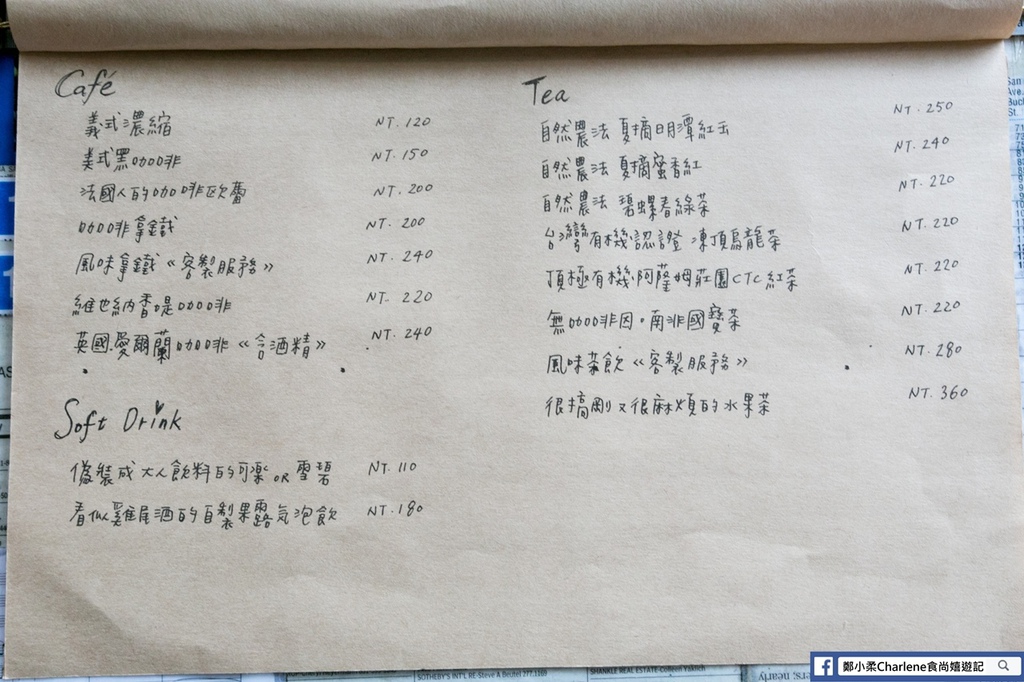 Café
義式濃縮 NT.120
美式黑咖啡 NT.150
法國人的咖啡歐蕾 NT.200
咖啡拿鐵 NT.200
風味拿鐵《客製服務》 NT.240
維也納香堤咖啡 NT.220
英國.愛爾蘭咖啡《含酒精》 NT.240
Soft Drink
偽裝成大人飲料的可樂 OR 雪碧 NT.110
看似雞尾酒的自製果露氣泡飲 NT.180
Tea
自然農法 夏摘日月潭紅玉 NT.250
自然農法 夏摘蜜香紅 NT.240
自然農法 碧螺春綠茶 NT.220
台灣有機認證 凍頂烏龍茶 NT.220
頂極有機阿薩姆莊園CTC紅茶 NT.220
無咖啡因。南非國寶茶 NT.220
風味茶飲《客製服務》 NT.280
很搞剛又很麻煩的水果茶 NT.360
SOTHEBY'S INT'L RE-Steve A Beutel 277.1169
SHANKLE REAL ESTATE-Colleen Yaknich
鄭小柔Charlene食尚嬉遊記